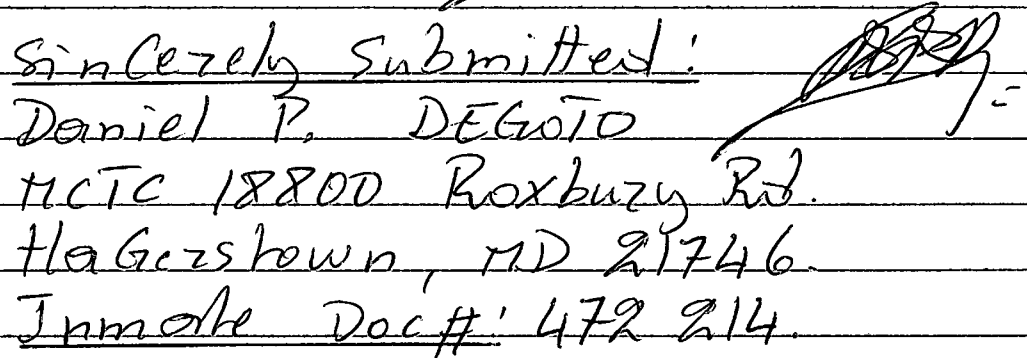 Sincerely Submitted:
Daniel P. DEGOTO
MCTC 18800 Roxbury Rd.
HaGerstown, MD 21746.
Inmate Doc#: 472 214.